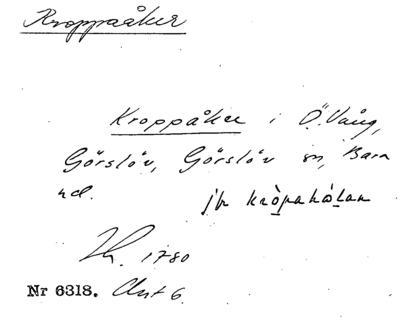 Kroppaåker
Kroppåker i Ö. Vång,
Görslöv, Görslöv sn, Bara
hd. jfr kròpahòlan
Lh. 1780
Nr 6318. Akt 6.